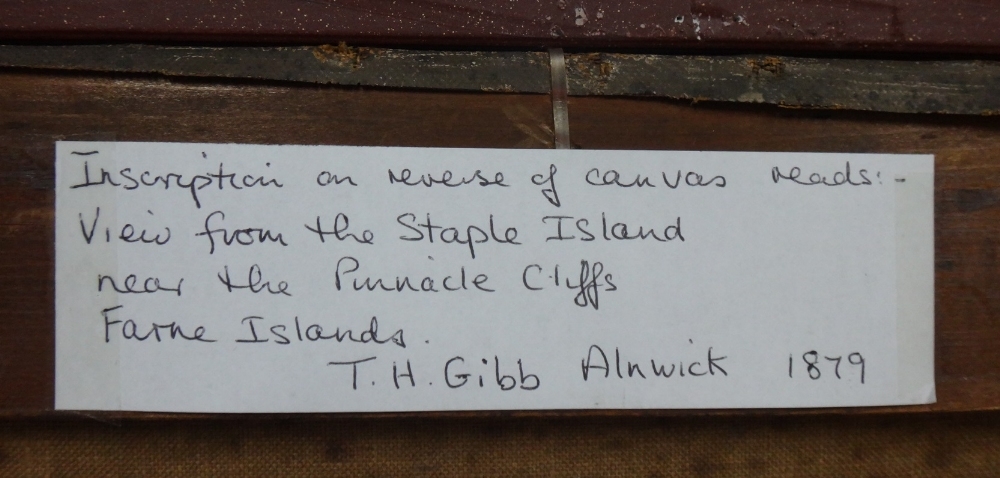 Inscription on reverse of canvas reads:-
View from the Staple Island
near the Pinnacle Cliffs
Farne Islands.
T.H. Gibb Alnwick 1879